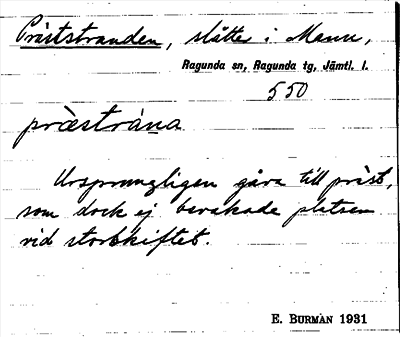 Präststranden, slåtter i Mann,
Ragunda sn, Ragunda tg, Jämtl. l.
550
præstrána
Ursprungligen gåva till präst,
som dock ej bevakade platsen
vid storskiftet.
E. BURMAN 1931